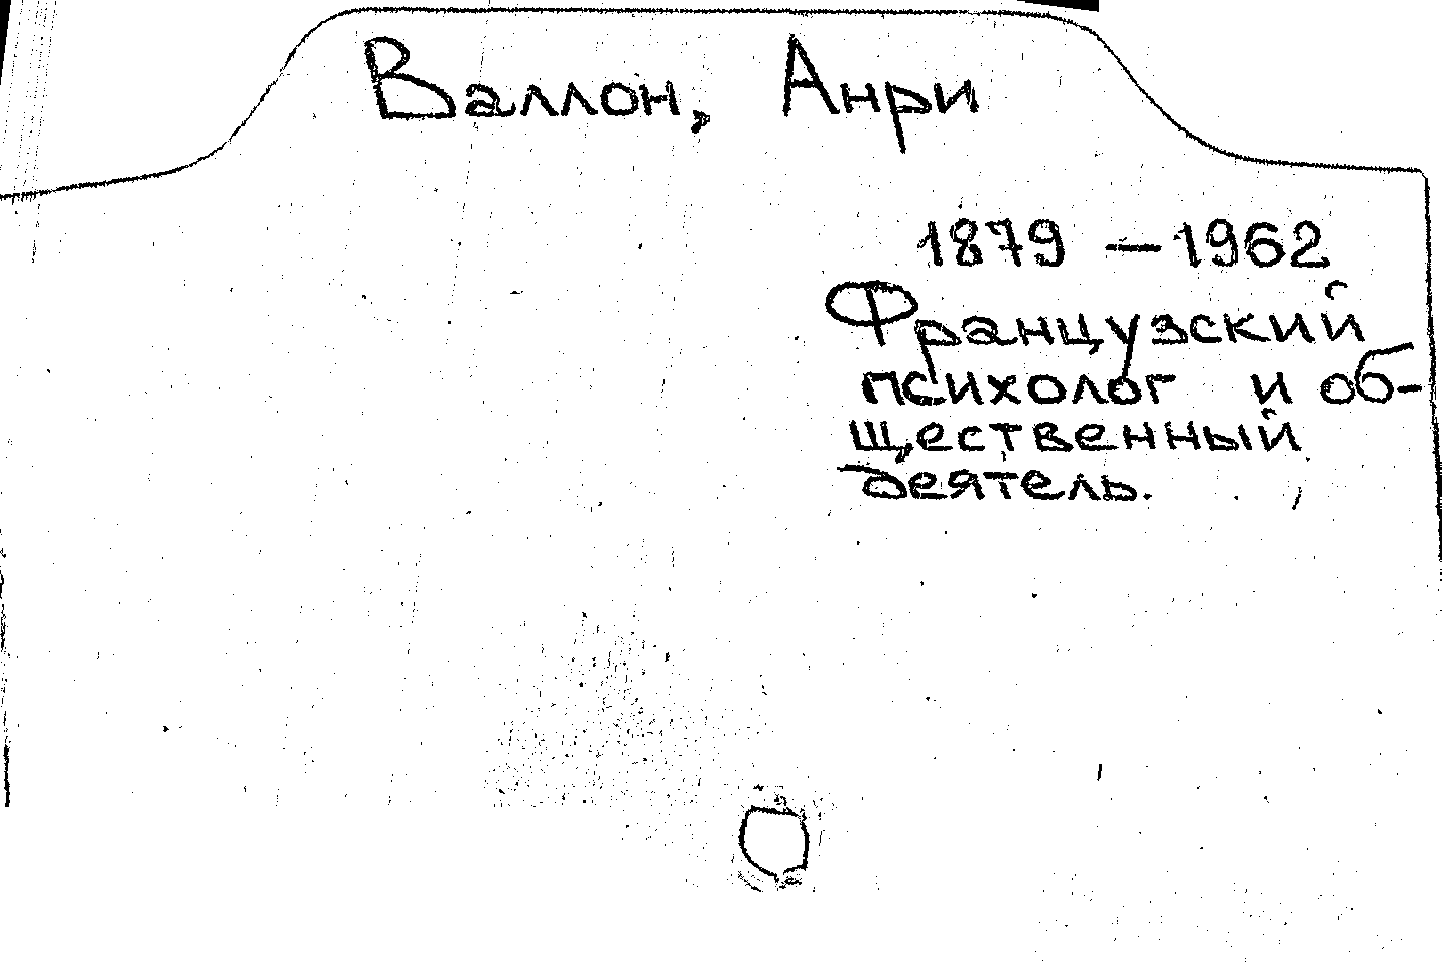 Валлон, Анри
1879 – 1962
Французский
психолог и об-
щественный
деятель.